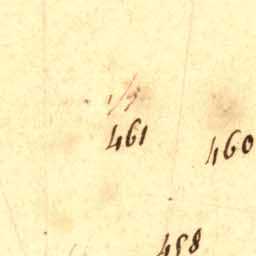 461
460
458